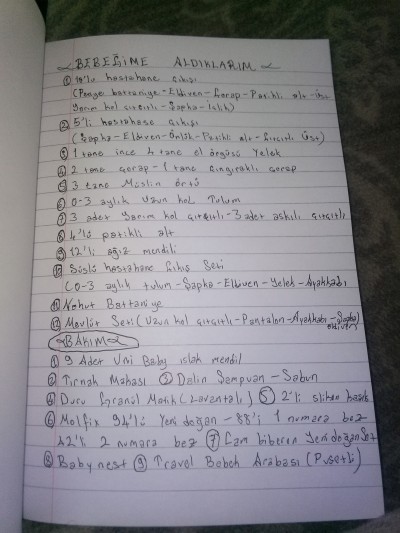 BEBEĞİME ALDIKLARIM
① 10'lu hastahane çıkışı
(Penye battaniye - Eldiven - Çorap - Patikli alt - üst
Yarım kol çıtçıtlı - Şapka - İçlik)
② 5'li hastahane çıkışı
(Şapka - Eldiven - Önlük - Patikli alt - Çıtçıtlı Üst)
③ 1 tane ince 4 tane el örgüsü Yelek
④ 2 tane çorap - 1 tane çıngıraklı çorap
⑤ 3 tane Müslin örtü
⑥ 0-3 aylık uzun kol Tulum
⑦ 3 adet yarım kol çıtçıtlı - 3 adet askılı çıtçıtlı
⑧ 4'lü patikli alt
⑨ 12'li ağız mendili
⑩ Süslü hastahane Çıkış Seti
(0-3 aylık tulum - Şapka - Eldiven - Yelek - Ayakkabı
⑪ Nohut Battaniye
⑫ Mevlüt Seti (Uzun kol çıtçıtlı - Pantalon - Ayakkabı - Şapka)
eldiven
BAKIM
① 9 Adet Uni Baby ıslak mendil
② Tırnak Makası ③ Dalin Şampuan - Sabun
④ Duru Granül Matik (Lavantalı) ⑤ 2'li silikon
⑥ Molfix 94'lü Yeni doğan - 88'i 1 numara bez
42'li 2 numara bez ⑦ Cam biberon Yeni doğan Set
⑧ Baby nest ⑨ Travel Bebek Arabası (Pusetli)